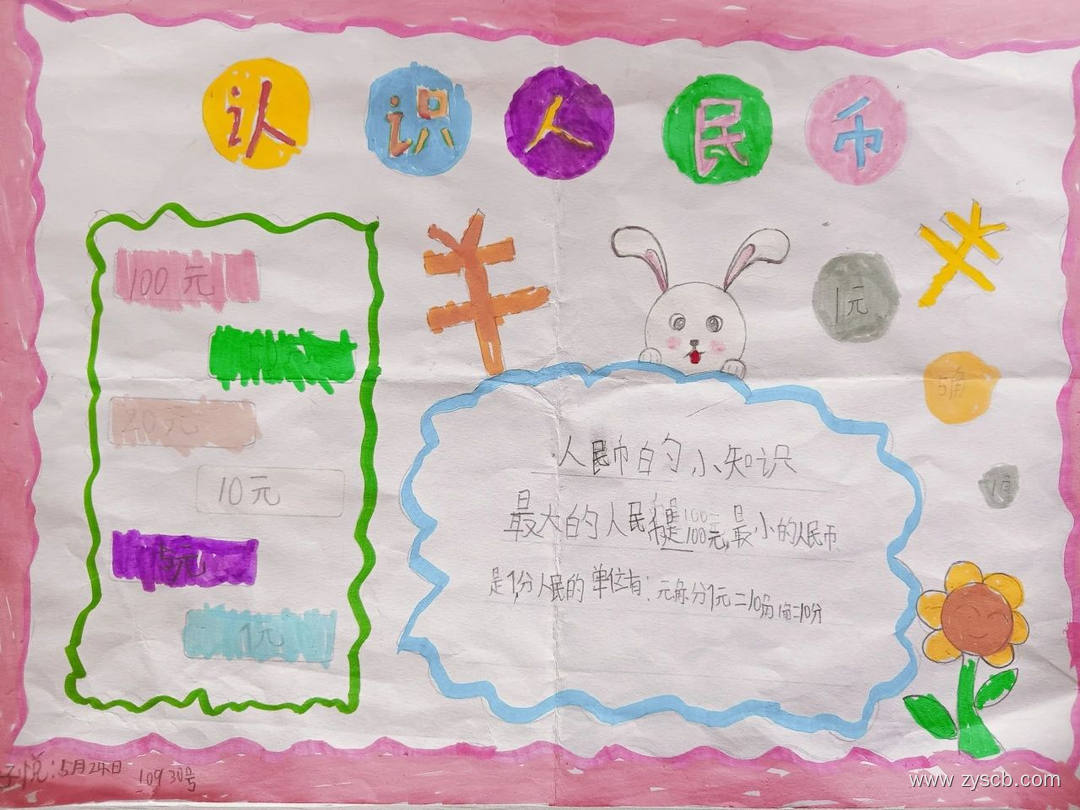 认识人民币
100元
20元
10元
5元
1元
1元
5角
1角
人民币的小知识
最大的人民币是100元,最小的人民币
是1分人民的单位有:元角分1元=10角1角=10分
悦:5月24日 109 30号
www.zyscb.com